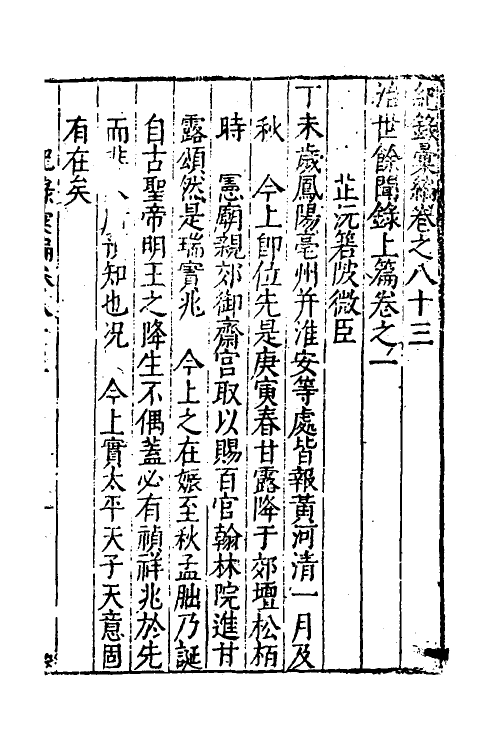 紀錄彙編卷之八十三
治世餘聞錄上篇卷之一
芷沅箬陂微臣
丁未歲鳳陽亳州并淮安等處皆報黃河清一月及
秋 今上卽位先是庚寅春甘露降于郊壇松栢
時 憲廟親郊御齋宮取以賜百官翰林院進甘
露頌然是瑞實兆 今上之在娠至秋孟朏乃誕
自古聖帝明王之降生不偶蓋必有禎祥兆於先
而非人所知也况 今上實太平天子天意固
有在矣
紀錄彙編卷八十三 一